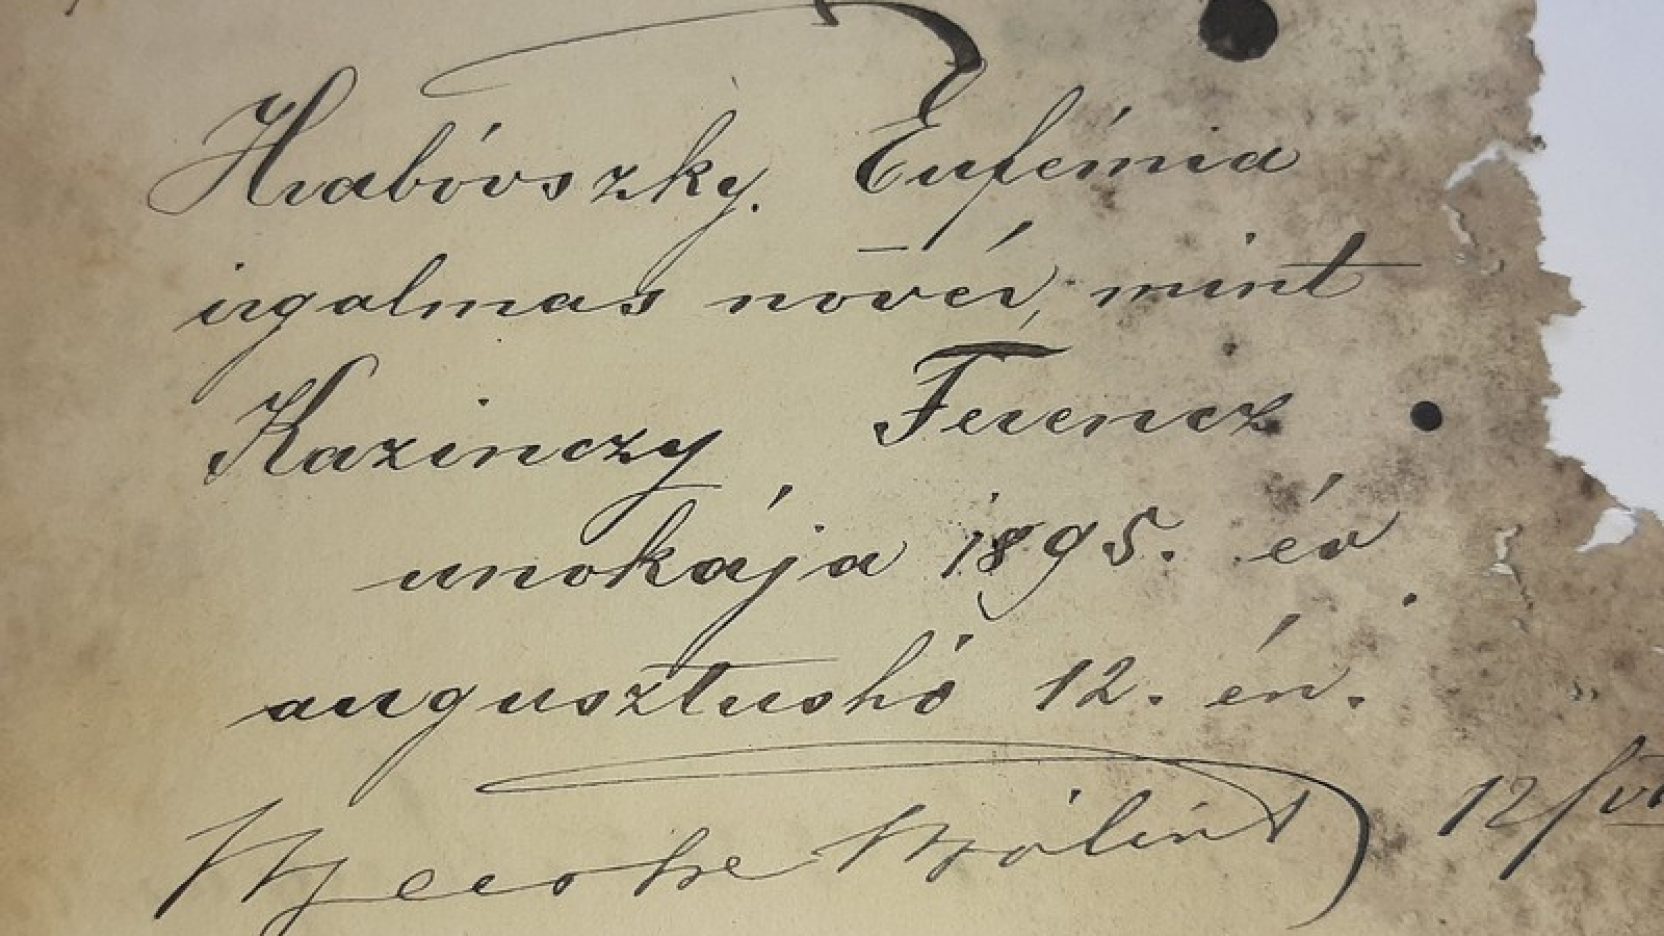 Hrabóvszky. Eufémia
irgalmas nővér, mint
Kazinczy Ferencz
unokája 1895. év
augusztushó 12. én.
Bálint 12/VI